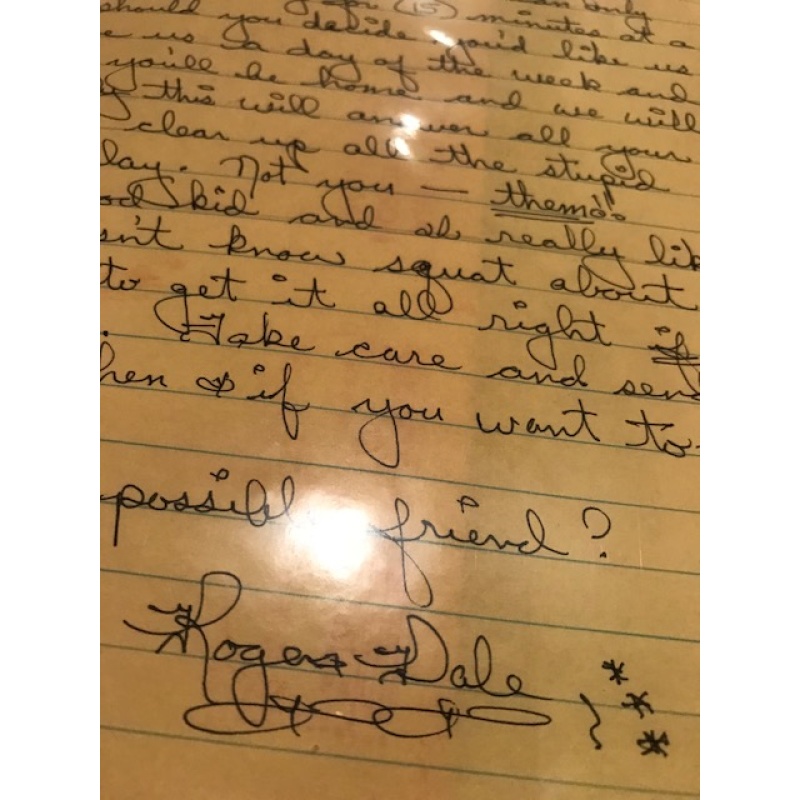 (15) minutes at a
should you decide you'd like us
us a day of the week and
you'll be home and we will
this will answer all your
clear up all the stupid
lay. Not you — them!
kid and I really
know squat about
to get it all right if
. Take care and
& if you want to
possible friend?
Roger Dale
} ***